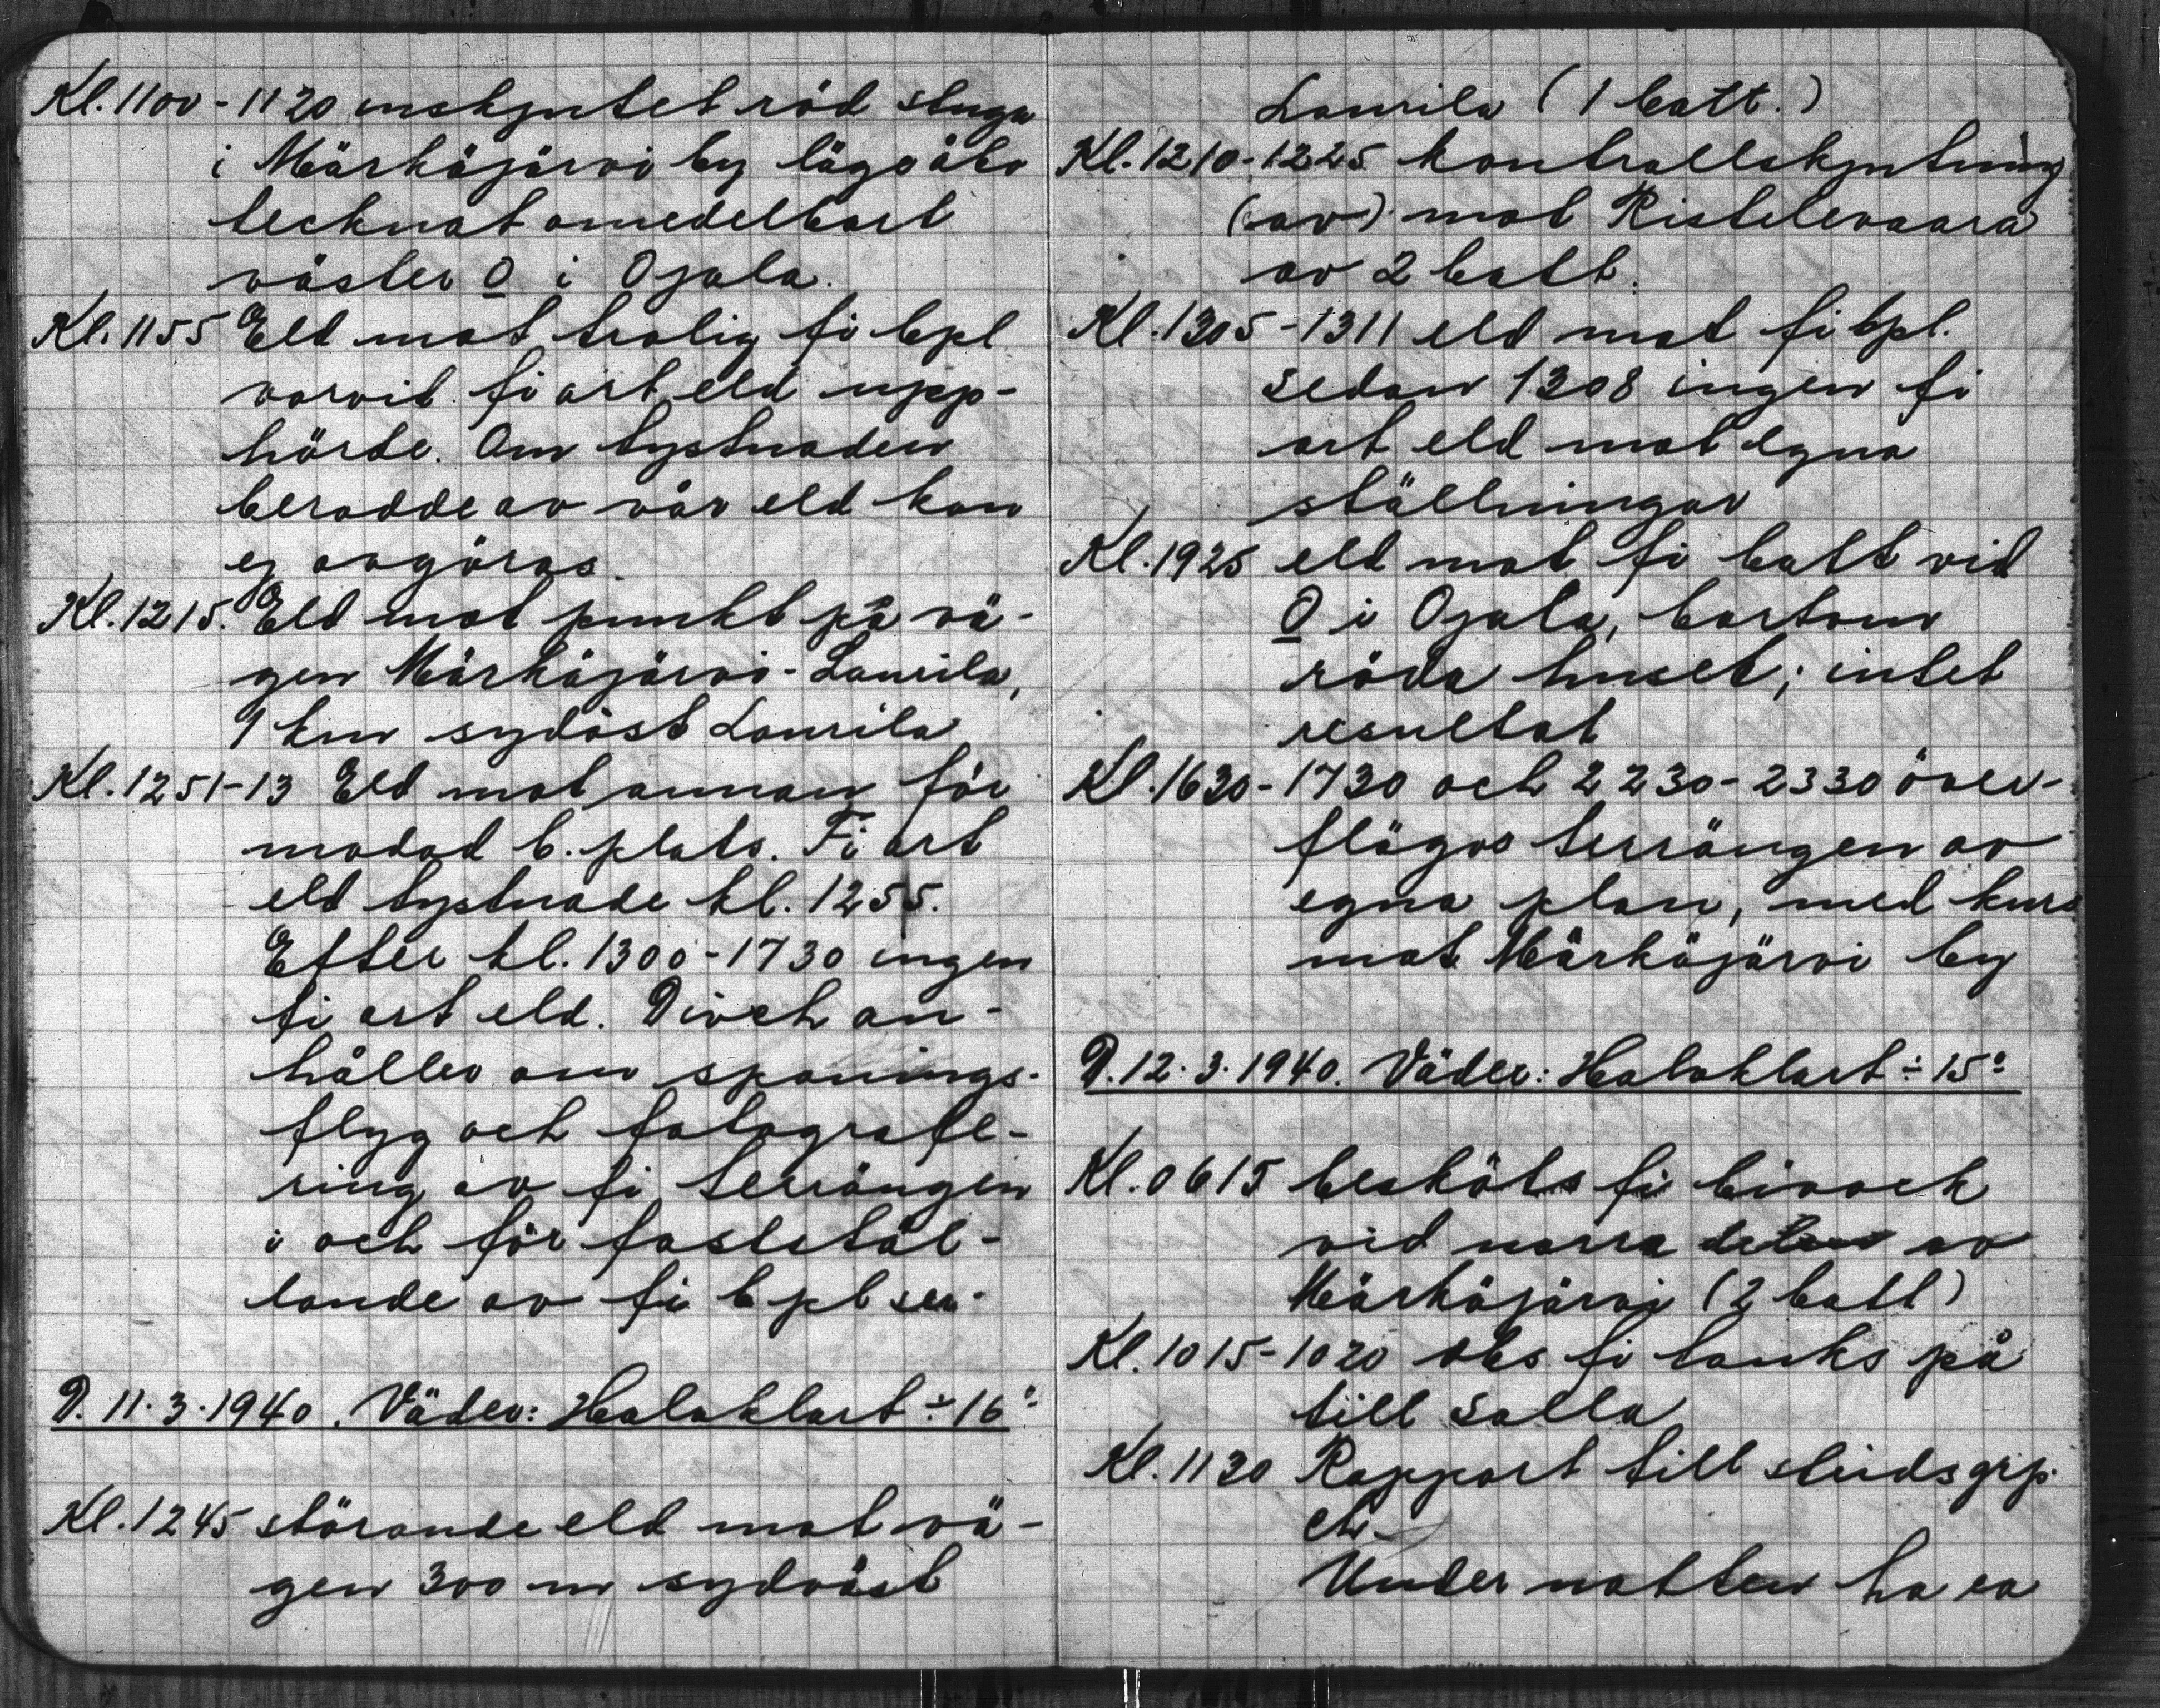 Kl. 1100 - 1120 inskjutet röd stuga
i Märkäjärvi by lågo åtv
tecknat omedelbart
väster O i Ojala.
Kl. 1155 Eld mot trolig fi bpl
varvid fi art eld upp-
hörde. Om tystnaden
berodde av vår eld kan
ej avgöras.
Kl. 1215. Eld mot punkt på vä-
gen Märkäjärvi - Laurila,
1 km sydöst Laurila
Kl. 1251-13 Eld mot annan för
modad b. plats. Fi art
eld tystnade kl. 1255.
Efter kl. 1300 - 1730 ingen
fi art eld. Divch an-
håller om spanings-
flyg och fotografe-
ring av fi terrängen
i och för fastställ-
lande av fi b pl ser.
D. 11.3.1940. Väder: Halvklart ÷ 16°
Kl. 1245 störande eld mot vä-
gen 300 m sydväst
Laurila (1 batt.)
Kl. 1210-1225 kontrollskjutning
(av) mot Ristelevaara
av 2 batt.
Kl. 1305 - 1311 eld mot fi bpl.
sedan 1308 ingen fi
art eld mot egna
ställningar
Kl. 1925 eld mot fi batt vid
O i Ojala, bortom
röda huset; intet
resultat
Kl. 1630 - 1730 och 2230 - 2330 över-
flögos terrängen av
egna plan, med kurs
mot Märkäjärvi by
D. 12.3.1940. Väder: Halvklart ÷ 15°
Kl. 0615 besköts fi bivack
vid norra delen av
Märkäjärvi (2 batt)
Kl. 1015 - 1020 obs fi tanks på
till Salla
Kl. 1130 Rapport till stridsgrp.
ch.
Under natten ha ca